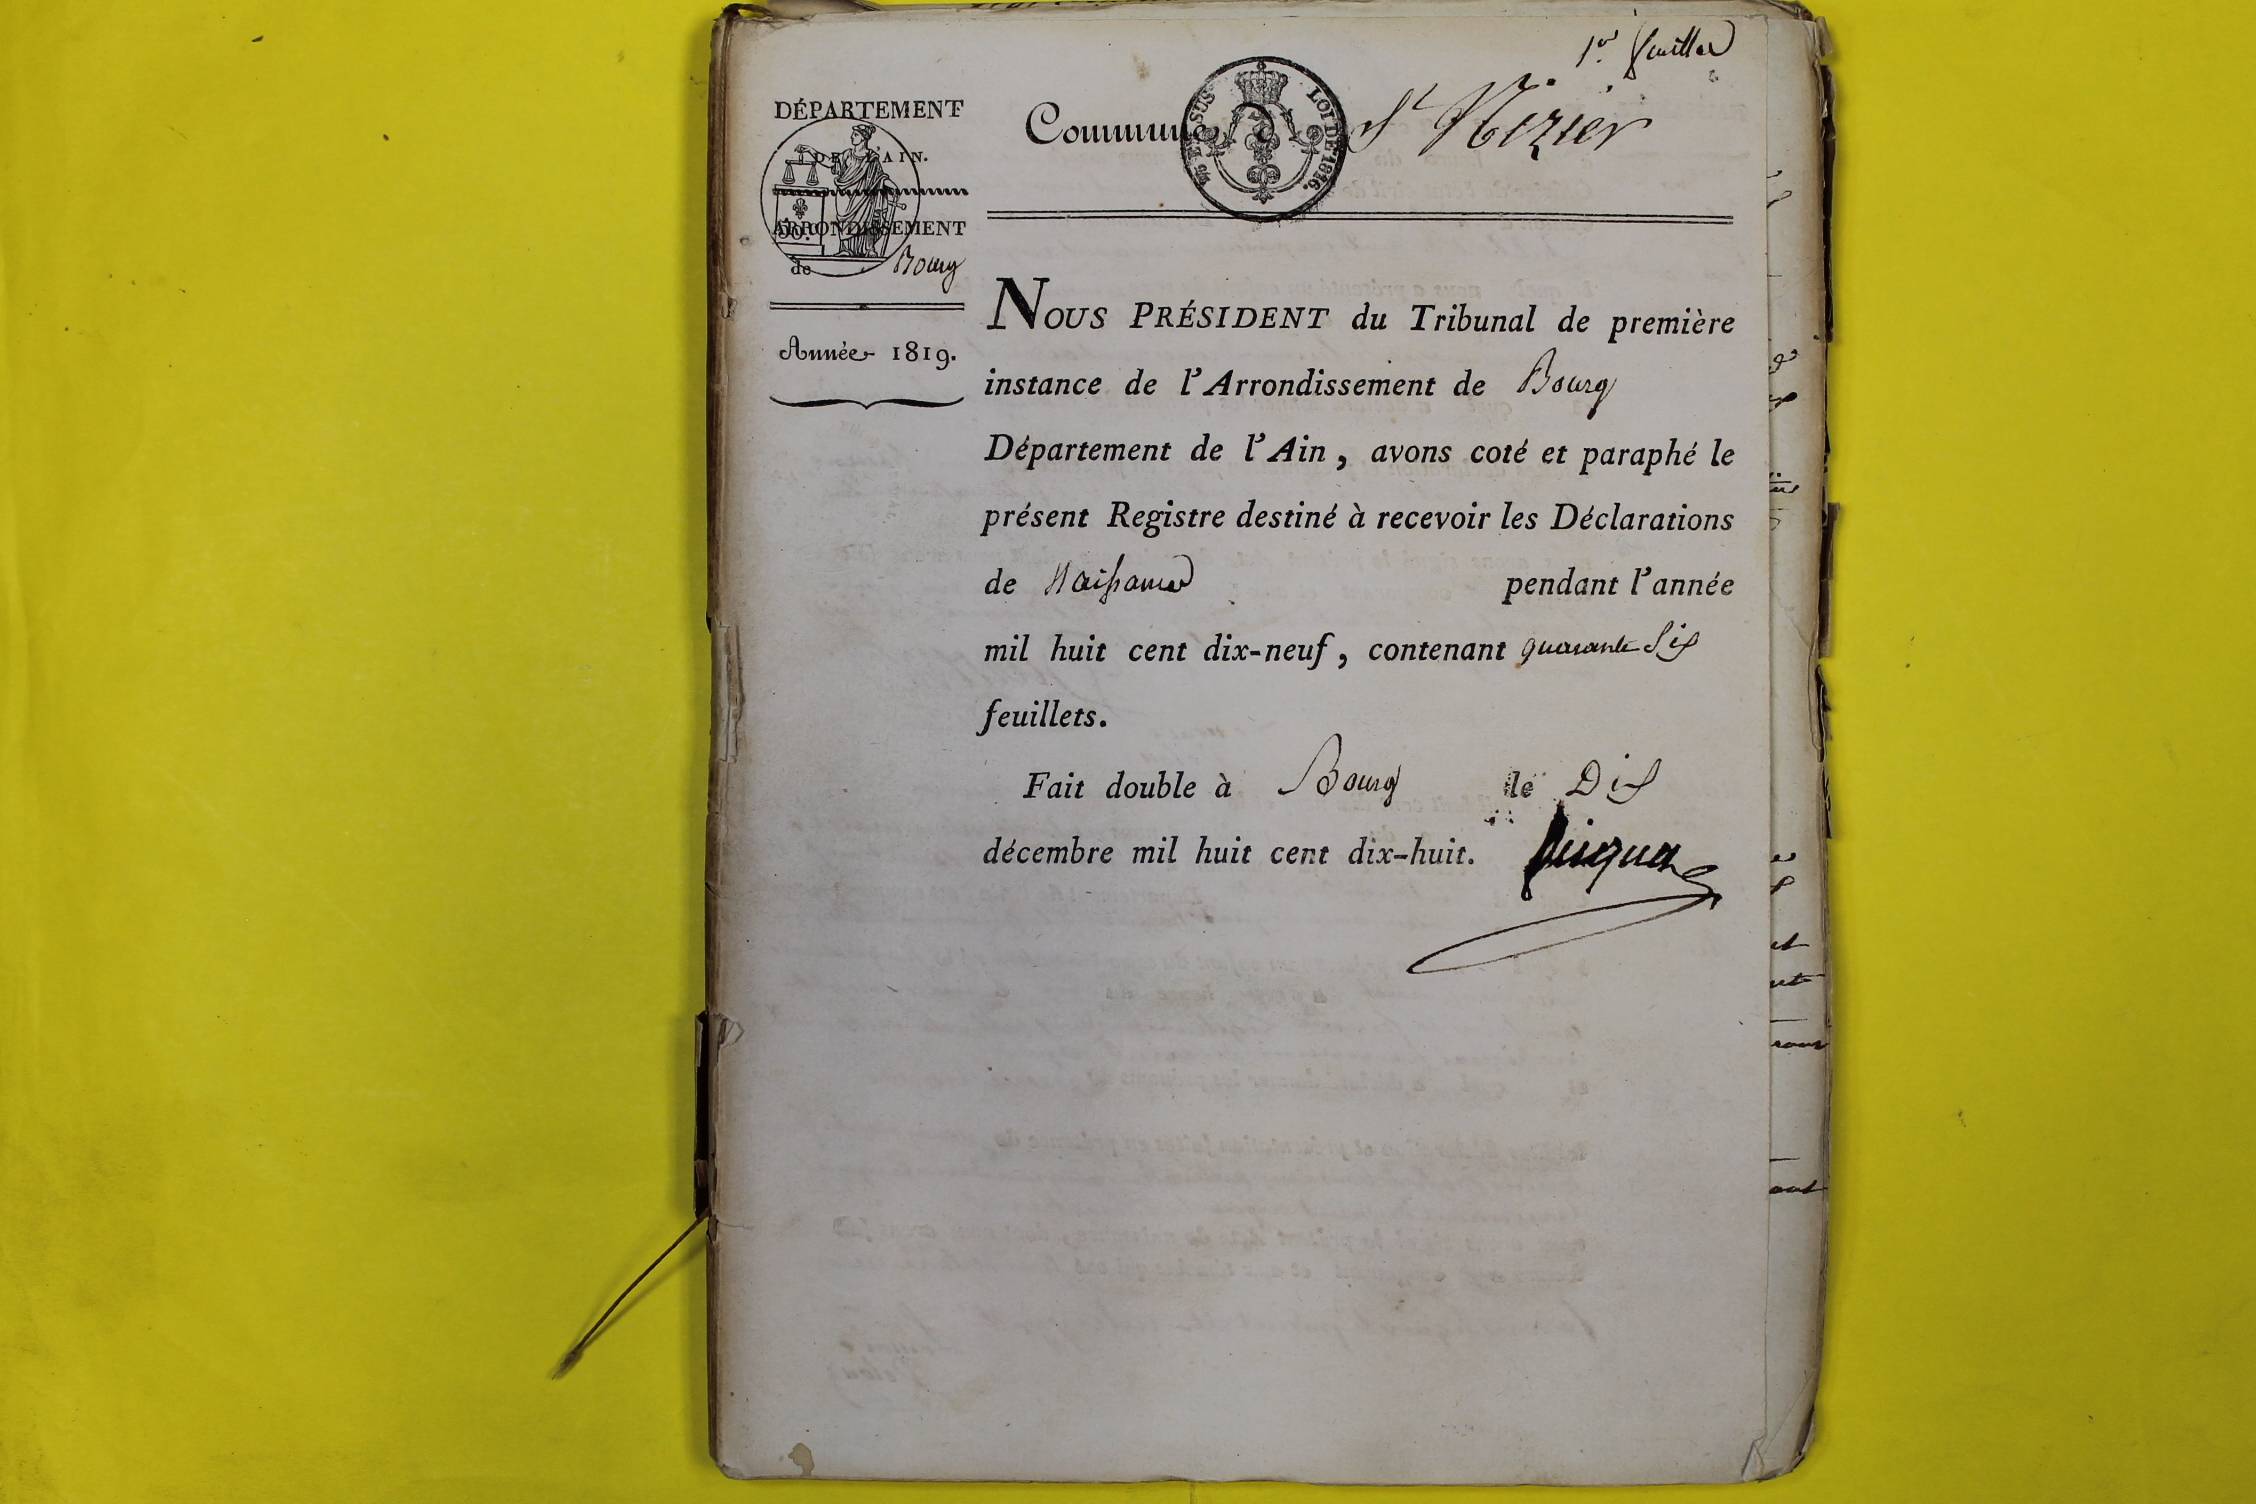 1er feuillet
DÉPARTEMENT
DE L'AIN.
ARRONDISSEMENT
50.c
de Bourg
Année 1819.
Commune d St Nizier
EN SUS
LOI DE 1816.
NOUS PRÉSIDENT du Tribunal de première
instance de l'Arrondissement de Bourg
Département de l'Ain, avons coté et paraphé le
présent Registre destiné à recevoir les Déclarations
de Naissance pendant l'année
mil huit cent dix-neuf, contenant quarante Six
feuillets.
Fait double à Bourg le Dix
décembre mil huit cent dix-huit.